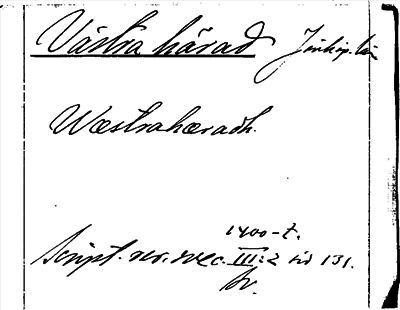 Västra härad Jönköp. län
Wæstrahæradh.
1400-t.
Script. rer. svec. III:2 sid 131.